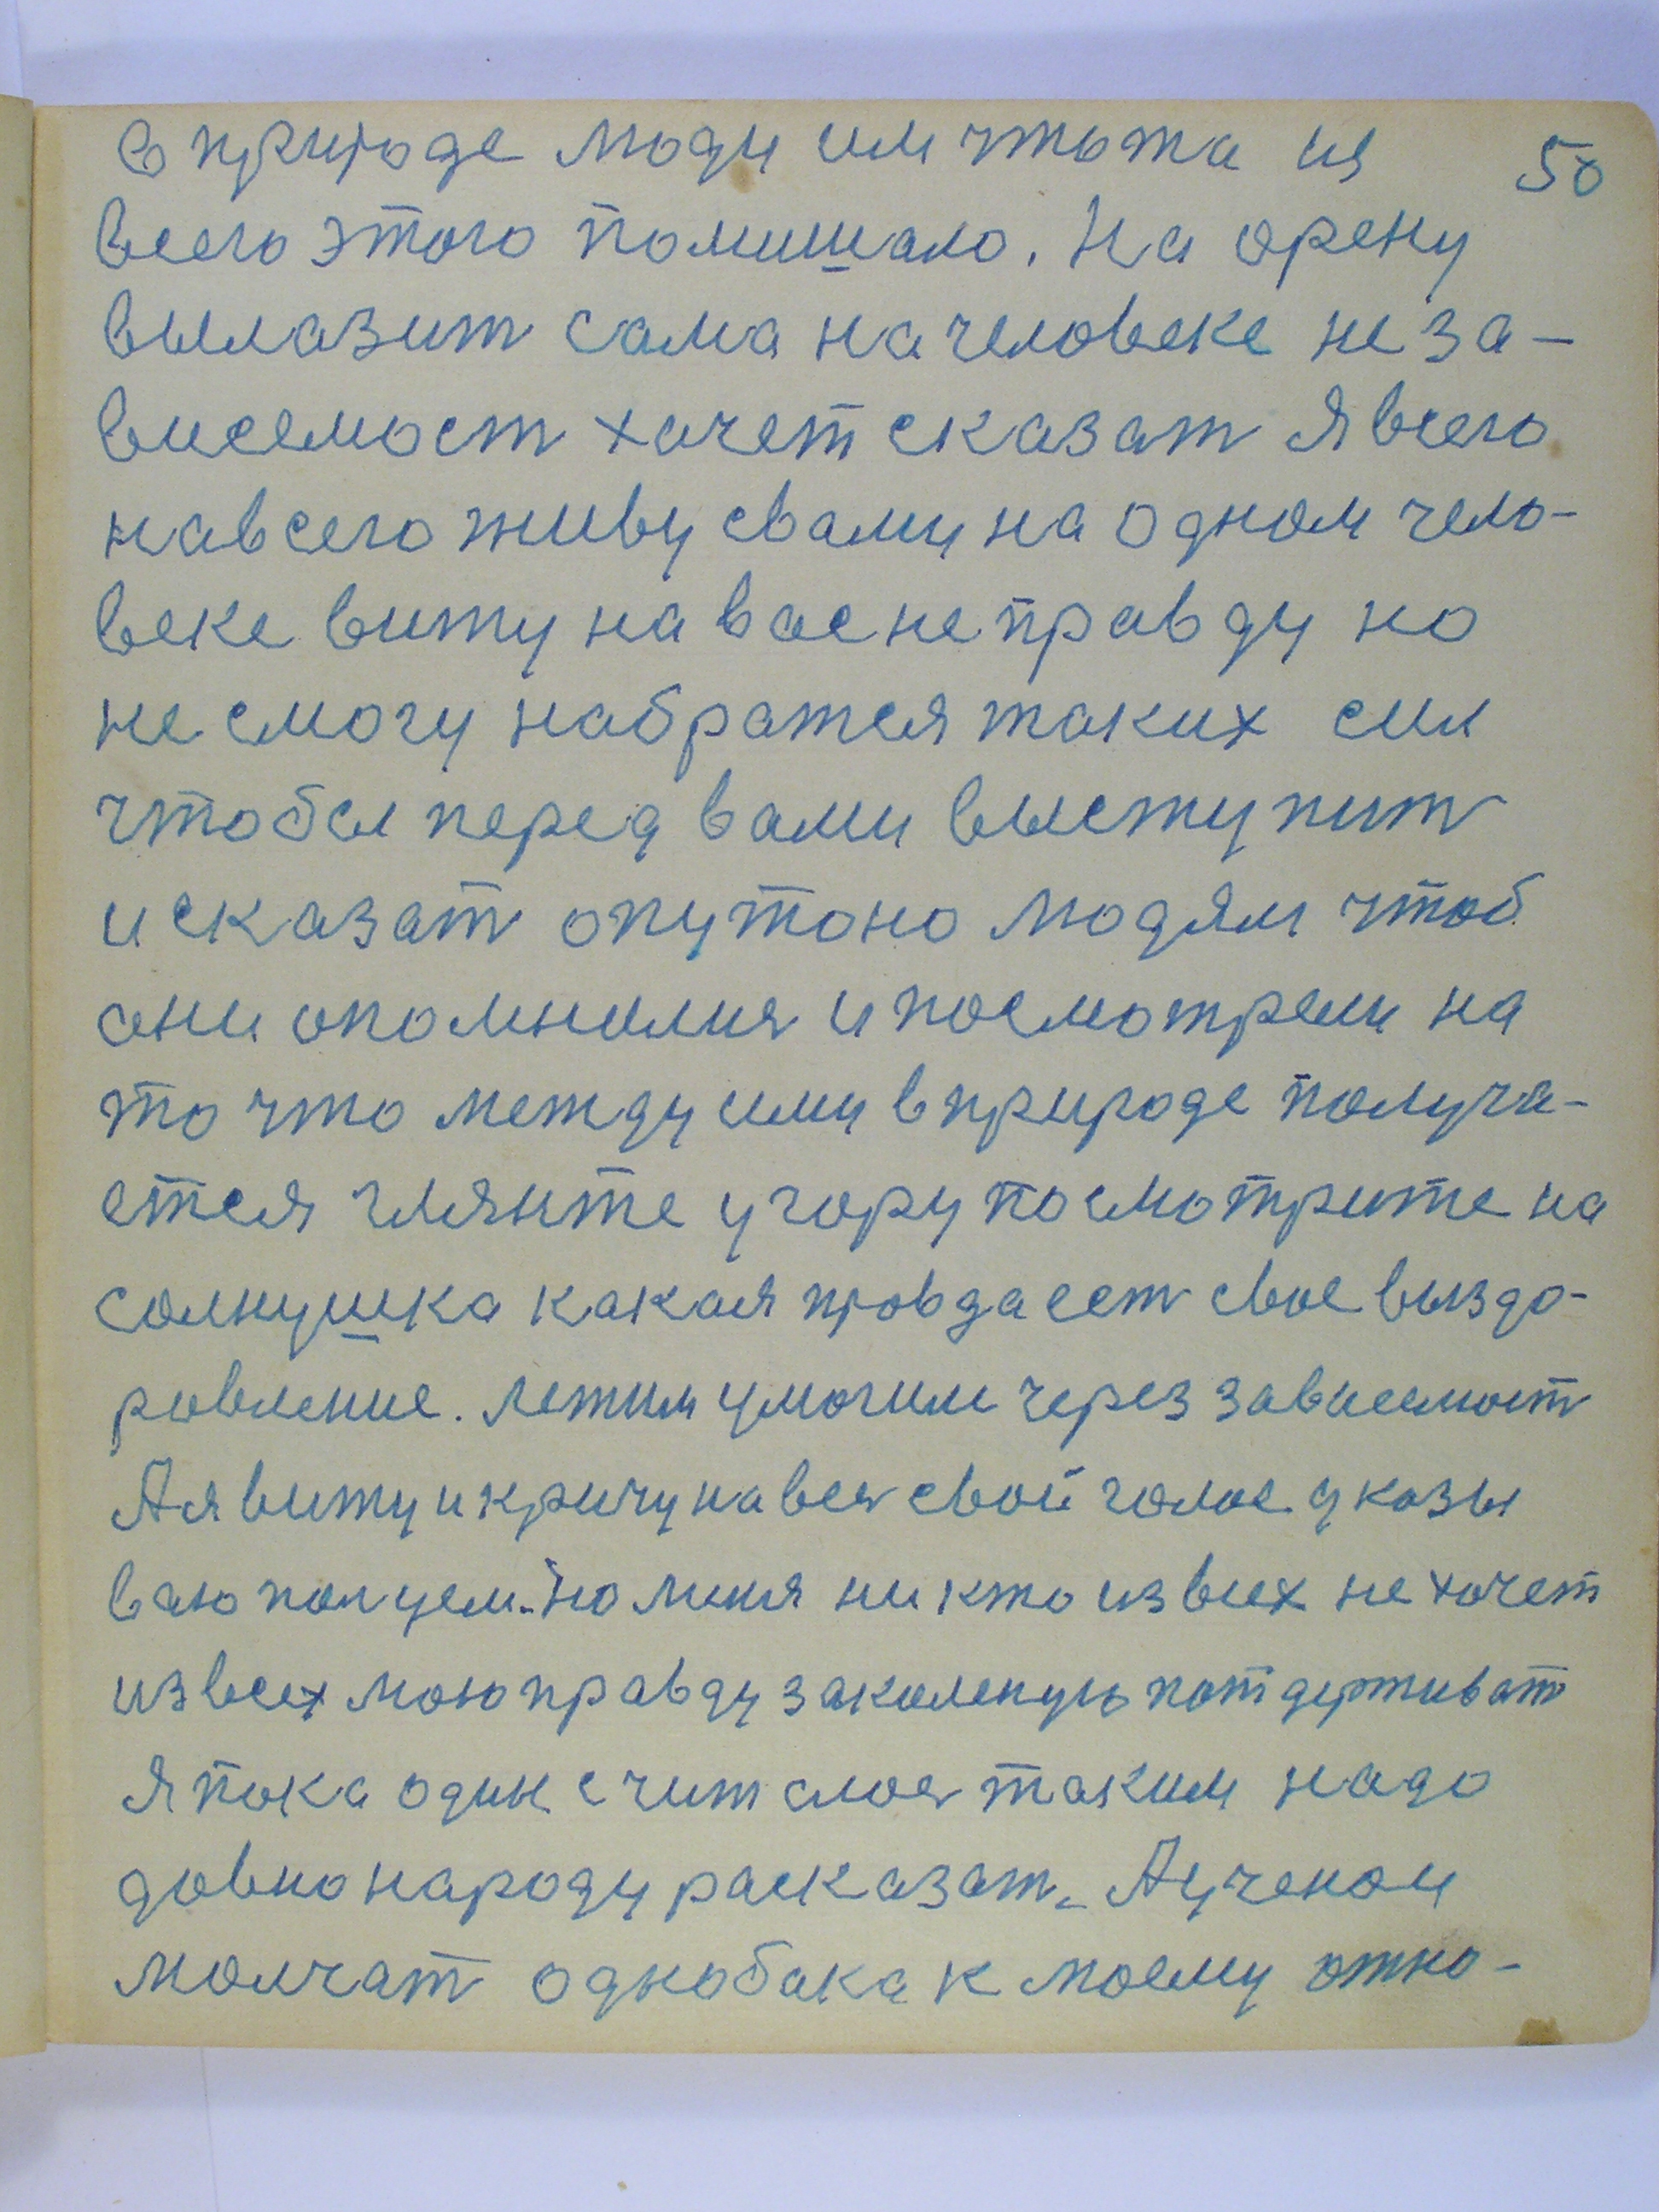 в природе люди им чтота из 50
всего этого помишало. На орену
вылазит сама на человеке не за-
висемост хочет сказат я всего
навсего живу свами на одном чело-
веке вижу на вас не правду но
не смогу набратся таких сил
чтобы перед вами выступит
и сказат опутоно людям чтоб
они опомнилис и посмотрели на
то что между ими в природе получа-
ется гляньте угору посмотрите на
солнушка какая правда ест свое выздо-
ровление. лежим умогиле через зависемост
А я вижу и кричу на вес свой голос указы
ваю польцем. но миня ни кто из всех не хочет
из всех мою правду закаленую потдерживат
я пока один считаюс таким надо
довно народу расказат. А учоном
молчат однобака к моему отно-